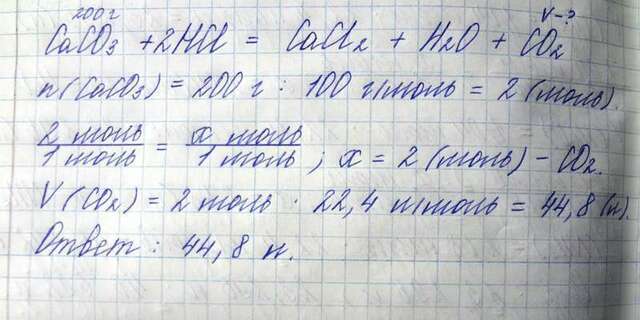 200 г V-?
CaCO₃ + 2HCl = CaCl₂ + H₂O + CO₂
n(CaCO₃) = 200 г : 100 г/моль = 2 (моль).
2 моль / 1 моль = x моль / 1 моль ; x = 2 (моль) - CO₂.
V(CO₂) = 2 моль · 22,4 л/моль = 44,8 (л).
Ответ : 44,8 л.